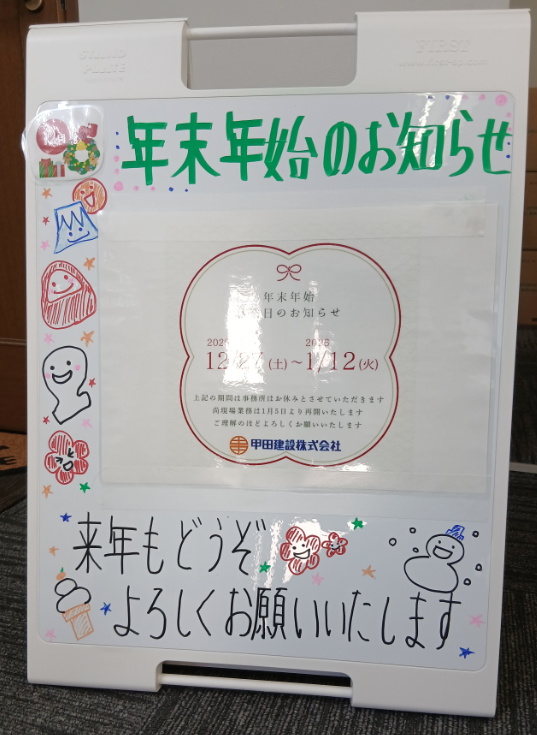 STAND
PLATE
FIRST
年末年始のお知らせ
年末年始
日のお知らせ
12/27(土)～1/12(火)
上記の期間は事務所はお休みとさせていただきます
尚現場業務は1月5日より再開いたします
ご理解のほどよろしくお願いいたします
甲田建設株式会社
来年もどうぞ
よろしくお願いいたします